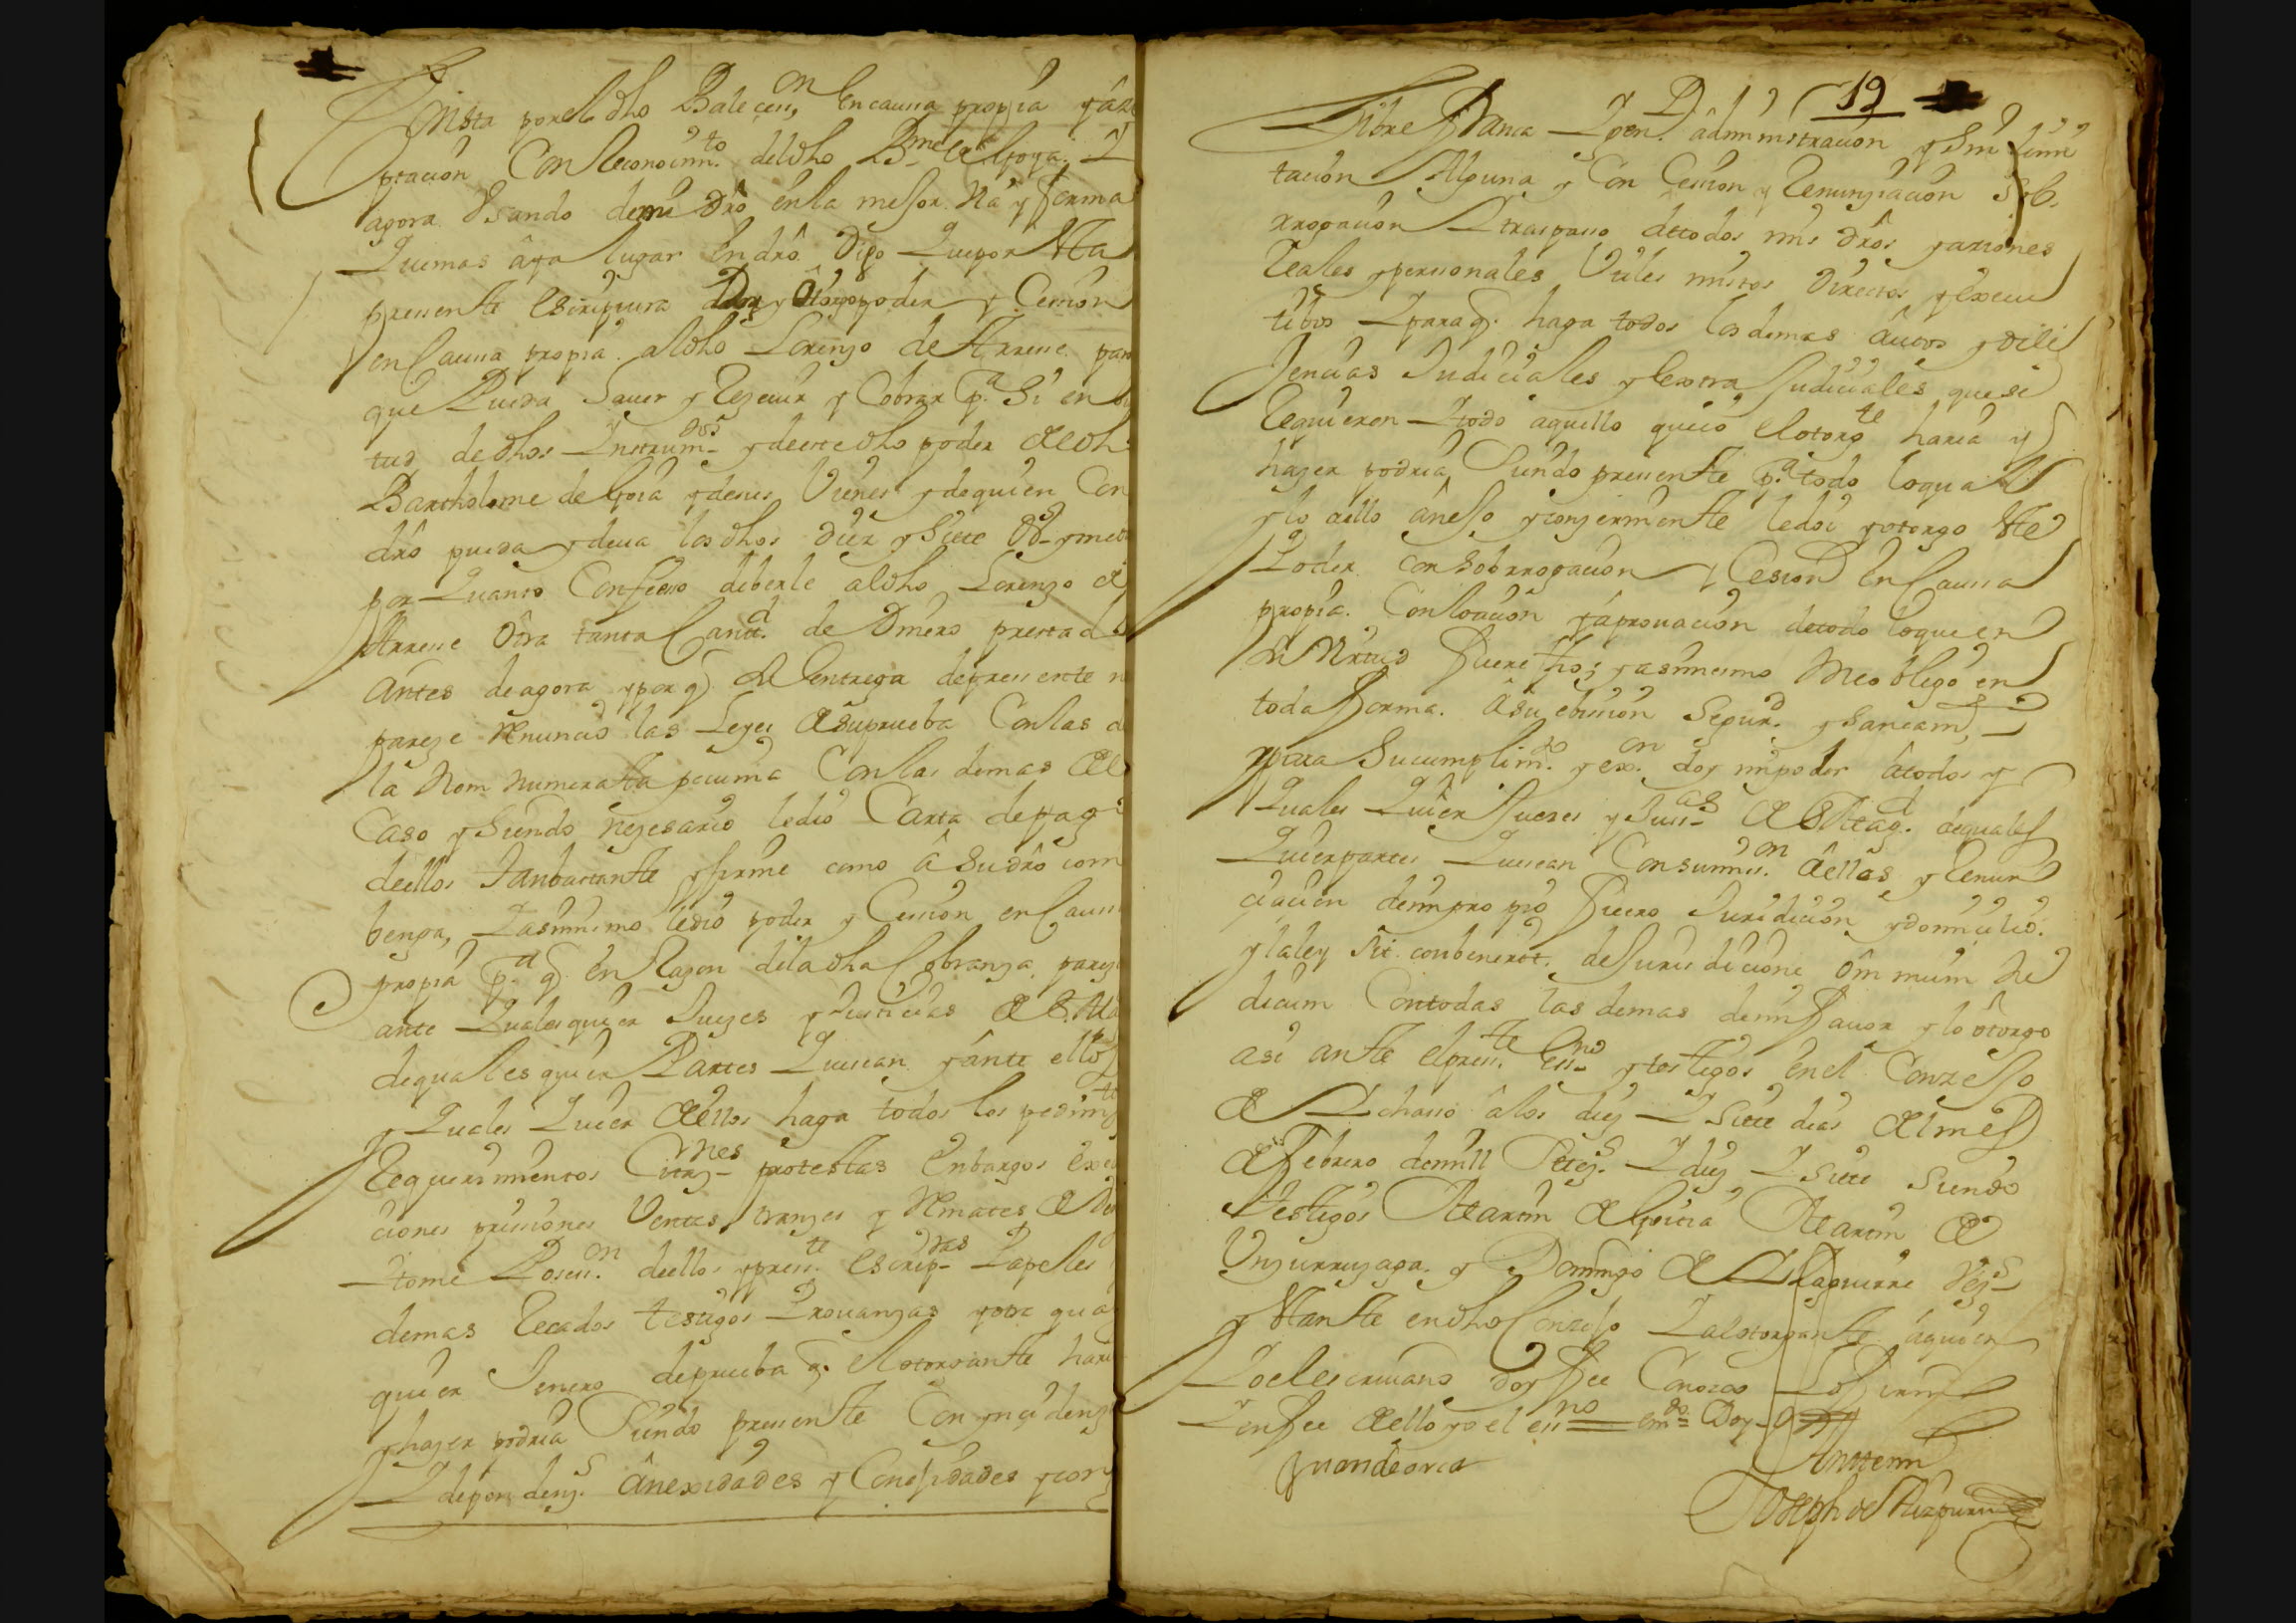 Vista por el dho Balecen,on en caussa propia y âze
ptacion Con Reconocim.to del dho B.me de Goya. Y
agora Vsando de mi drô en la mejor Via y forma
Que mas âya lugar en drô Digo Que por Sta
pressente Escriptura Doy y Otorgo poder y Cession
en Caussa propia al dho Lorenzo de Arresse para
que Pueda Sauer y Rezeuir y Cobrar p.a Si en
tud de dhos Instrum.tos y de este dho poder de dho
Bartholome de Goia y de sus Vienes y de quien Con
drô pueda y deua los dhos diez y Siete Ds y medio
por Quanto Confiesso deberle al dho Lorenzo de
Arresse Otra tanta Cantt.d de Dinero prestado
antes de agora y por q. La entrega de pressente no
pareze Renuncio las Leyes de su prueba Con las de
la Nom Numerata pecunia Con las demas del
Caso y Siendo nezesario le dio Carta de pago
de ellos Tan bastante y firme como â Su drô com
benga, Y asimismo le dio poder y Cession en Caussa
propia p.a q. en Razon de la dha Cobranza pareza
ante Qualesquier Juezes y Justicias de S. Mag
de qualesquier Partes Que sean y ante ellos
y Quales Quier de ellos haga todos los pedim.tos
Requerimientos Citaz.nes protestas Enbargos exe
ciones prissiones Ventas tranzes y Remates de Vie
Y tome Posess.on de ellos y press.te Escrip.ras Papeles
demas Recados testigos Prouanzas y otra qual
quier Jenero de prueba q. el otorgante haria
y hazer podria Siendo pressente Con ynzidenz
Y dependenz.s Anexidades y Conejidades y con
19
Libre y franca Y gen.l administracion y Sin limi
tacion Alguna y Con Cession y Renunziacion Sub
rrogacion Y traspasso de todos mis drôs y acciones
Reales y perssonales Vtiles mistos Directos y execu
tibos Y para q. haga todos los demas autos y dili
Jencias Judiciales y Extra Judiciales que se
Requieren Y todo aquello que io el otorg.te haria y
hazer podria Siendo pressente p.a todo lo qual
y lo a ello anejo y conzerniente le doi y otorgo Ste
Poder con Sobrrogacion y Cesion en Caussa
propia. Con loacion y aprouacion de todo lo que en
su Virtud fuere fho; y asimismo Me obligo en
toda forma. A su ebicion Segur.d y Saneam.to
y para Su cumplim.to y ex.on doy mi poder â todos y
Quales Quier Juezes y Jus.as de S Mag.d de quales
Quier partes Que sean Con sumiss.on a ellas y Renun
ciacion de mi propio fuero Juridicion y domicilio
y la ley Sit conbenerit de Jurisdicione Omnium Ju
dicum Con todas las demas de mi fauor y lo otorgo
asi ante el press.te Ess.no y testigos en el Conzejo
de Achasso a los diez Y Siete dias del mes
de Febrero de mill Setez.s Y diez Y Siete Siendo
Testigos Martin de Goicia Martin de
Vnzurruzaga y Domingo de Ylaguirre Vez.s
y Stante en dho Conzejo Y al otorgante a quien
Yo el escriuano doy fee Conozco Lo firmo
Y en fee de ello yo el ess.no
Juan de orca
Anttemi
Joseph de Aizpuru